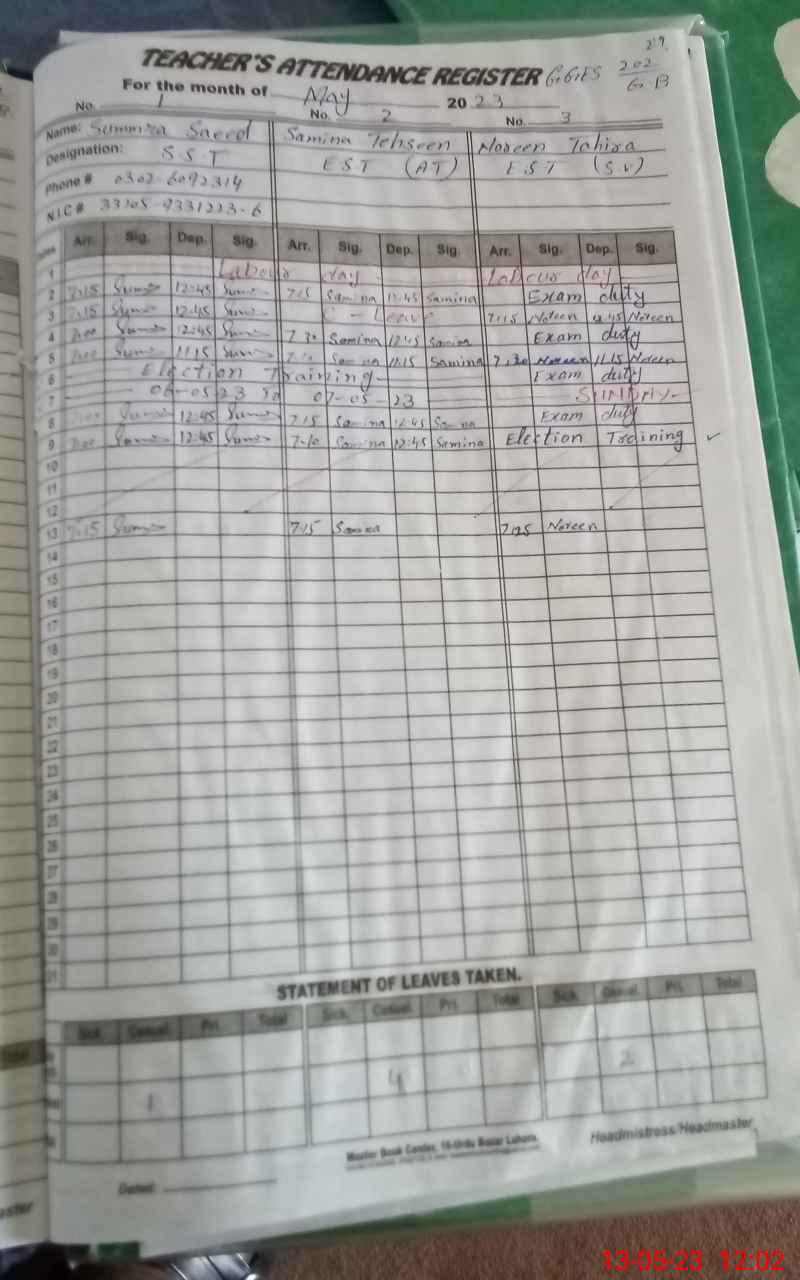 219
TEACHER'S ATTENDANCE REGISTER G.G.E.S 202/G.B
For the month of May 2023
No. 1 No. 2 No. 3
Name: Summra Saeed Samina Tehseen Noreen Tahira
Designation: S S T E S T (A T) E S T (S.V)
Phone # 0302-6092314
N.I.C # 33105-9331223-6
Arr. Sig. Dep. Sig. Arr. Sig. Dep. Sig. Arr. Sig. Dep. Sig.
1 Labour day Labour day
2 7:15 12:45 7:15 Samina 12:45 Samina Exam duty
3 7:15 12:45 C - Leave 7:15 Noreen 12:45 Noreen
4 7:00 12:45 7:30 Samina 12:45 Samina Exam duty
5 7:00 11:15 Samina 11:15 Samina 7:30 Noreen 11:15 Noreen
6 Election Training Exam duty
7 06-05-23 To 07-05-23 SUNDAY
8 12:45 7:15 Samina 12:45 Samina Exam duty
9 7:00 12:45 7:10 Samina 12:45 Samina Election Training
10
11
12
13 7:15 7:15 Samina 7:25 Noreen
14
15
16
17
18
19
20
21
22
23
24
25
26
27
28
29
30
31
STATEMENT OF LEAVES TAKEN.
Sick. Casual. Pri. Total Sick. Casual. Pri. Total Sick. Casual. Pri. Total
1 4 2
Master Book Center, 16-Urdu Bazar Lahore.
Headmistress/Headmaster
Dated:
13-05-23 12:02